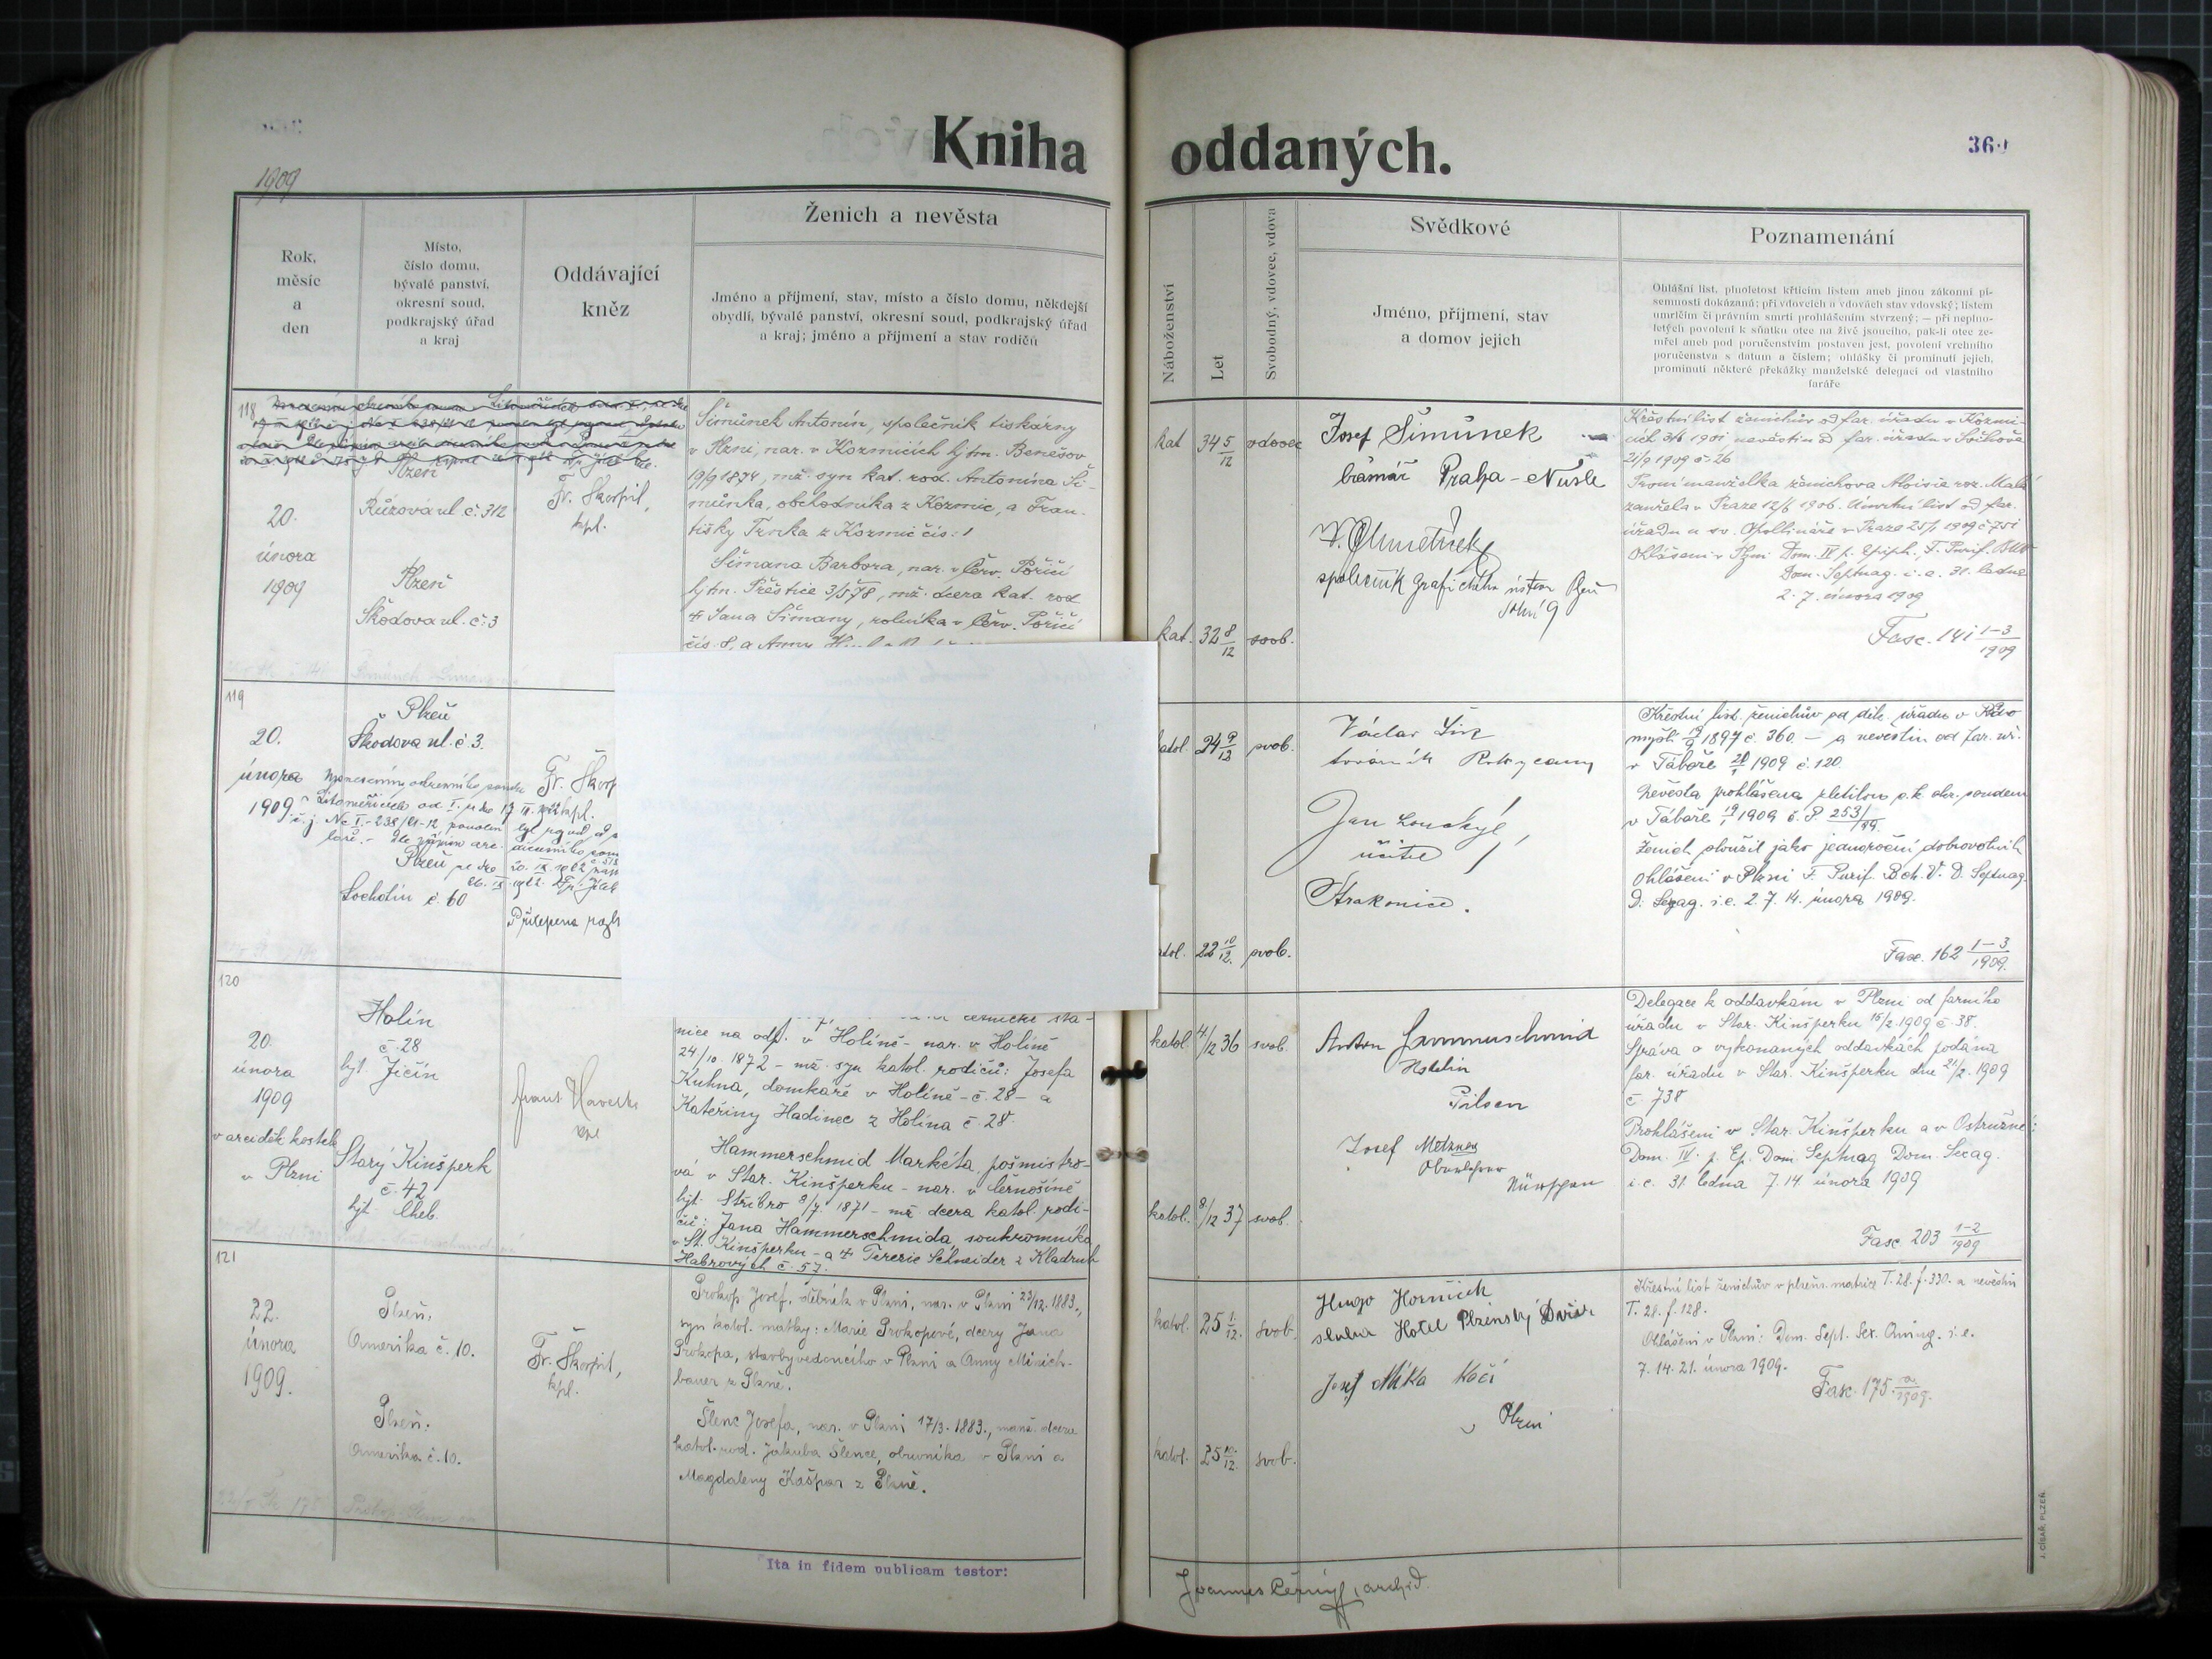 Kniha oddaných.
1909
360
Rok,
měsíc
a
den
Místo,
číslo domu,
bývalé panství,
okresní soud,
podkrajský úřad
a kraj
Oddávající
kněz
Ženich a nevěsta
Jméno a příjmení, stav, místo a číslo domu, někdejší
obydlí, bývalé panství, okresní soud, podkrajský úřad
a kraj; jméno a příjmení a stav rodičů
Náboženství
Let
Svobodný, vdovec, vdova
Svědkové
Jméno, příjmení, stav
a domov jejich
Poznamenání
Ohlášní list, plnoletost křticím listem aneb jinou zákonní pí-
semností dokázanú; při vdovcích a vdovách stav vdovský; listem
umrlčím či právním smrti prohlášením stvrzený; — při neplno-
letých povolení k sňatku otce na živě jsoucího, pak-li otec ze-
mřel aneb pod poručenstvím postaven jest, povolení vrchního
poručenstva s datum a číslem; ohlášky či prominutí jejich,
prominutí některé překážky manželské delegací od vlastního
faráře
118
20.
února
1909
Plzeň
Růžová ul. č. 312
Plzeň
Škodova ul. č. 3
Fr. Škorpil,
kpl.
Šimůnek Antonín, společník tiskárny
v Plzni, nar. v Kozmicích hjtm. Benešov
19/9 1874, mž. syn kat. rod. Antonína Ši-
můnka, obchodníka z Kozmic, a Fran-
tišky Trnka z Kozmic čís: 1
Šimana Barbora, nar. v Červ. Poříčí
hjtm. Přeštice 3/5 78, mž. dcera kat. rod.
Jana Šimany, rolníka v Červ. Poříčí
čís. 8, a Anny
kat 34 5/12 vdovec
kat. 32 8/12 svob.
Josef Šimůnek
Praha - Nusle
společník Grafického ústavu Plzeň
Křestní list ženichův od far. úřadu v Kozmi-
cích 1901 nevěstin od far. úřadu v
21/9 1909 č. 26
První manželka ženichova Aloisie roz. Malá
zemřela v Praze 12/6 1906. Úmrtní list od far.
úřadu u sv. Apollináře v Praze 25/1 1909 č 751
Ohlášeni v Plzni Dom. IV p. Epiph., F. Purif. BMV
Dom. Septuag. i. e. 31. ledna
2. 7. února 1909
Fasc. 141 1-3/1909
119
20.
února
1909
Plzeň
Škodova ul. č 3.
Plzeň
Lochotín č. 60
Fr. Škorp
kpl.
katol. 24 9/12 svob.
katol. 22 10/12 svob.
Václav
továrník Rokycany
Jan Louckýl,
učitel
Strakonice.
Křestní list ženichův od děk. úřadu v Rado-
myšli 1897 č. 360. — a nevěstin od far. úř.
v Táboře 1909 č. 120.
Nevěsta prohlášena zletilou c. k. okr. soudem
v Táboře 19/1 1909 č. P 253/99.
Ženich sloužil jako jednoroční dobrovolník
Ohlášeni v Plzni F. Purif. B. V. D. Septuag.
D. Sexag. i. e. 2. 7. 14. února 1909.
Fasc. 162 1-3/1909.
120
20.
února
1909
v arciděk. kostele
v Plzni
Holín
č. 28
hjt. Jičín
Starý Kinšperk
č. 42
hjt. Cheb.
Frant. Havelka
kpl
četnické sta-
nice na odp. v Holíně - nar. v Holíně
24/10 1872 - mž. syn katol. rodičů: Josefa
Kuhna, domkaře v Holíně - č. 28 - a
Kateřiny Hadinec z Holína č. 28.
Hammerschmid Markéta, pošmistro-
vá v Star. Kinšperku - nar. v Černošíně
hjt. Stříbro 8/7. 1871 - mž dcera katol. rodi-
čů: Jana Hammerschmida soukromníka
v St. Kinšperku - a Terezie Schneider z Kladrub
Habrových č. 57.
katol. 4/12 36 svob.
katol. 8/12 37 svob.
Anton Hammerschmid
Pilsen
Josef Metzner
Oberlehrer
Nürschan
Delegace k oddavkám v Plzni od farního
úřadu v Star. Kinšperku 15/2 1909 č. 38.
Zpráva o vykonaných oddavkách podána
far. úřadu v Star. Kinšperku dne 21/2. 1909
č. 738
Prohlášeni v Star. Kinšperku a v Ostružné:
Dom. IV. p. Ep. Dom. Septuag Dom. Sexag.
i. e. 31. ledna 7. 14. února 1909
Fasc 203 1-2/1909
121
22.
února
1909.
Plzeň,
Amerika č. 10.
Plzeň:
Amerika č. 10.
Fr. Škorpil,
kpl.
Prokop Josef, dělník v Plzni, nar. v Plzni 23/12. 1883.,
syn katol. matky: Marie Prokopové, dcery Jana
Prokopa, stavbyvedoucího v Plzni a Anny Minich-
bauer z Plzně.
Šlenc Josefa, nar. v Plzni 17/3. 1883., manž. dcera
katol. rod. Jakuba Šlence, obuvníka v Plzni a
Magdaleny Kašpar z Plzně.
katol. 25 1/12. svob.
katol. 25 10/12. svob.
Hugo Horníček
sluha Hotel Plzeňský Dvůr
Josef Míka Kočí
v Plzni
Křestní list ženichův v plzeňs. matrice T. 28. f. 330. a nevěstin
T. 28. f. 128.
Ohlášeni v Plzni: Dom. Sept. Sex. Quinq. i. e.
7. 14. 21. února 1909.
Fasc. 175. a/1909.
Ita in fidem publicam testor:
Joannes Černý, archid.
J. CÍSAŘ, PLZEŇ